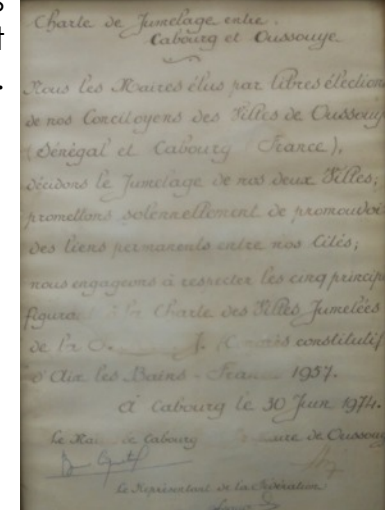 Charte de Jumelage entre.
Cabourg et Oussouye
Nous les Maires élus par libres élections
de nos Concitoyens des Villes de Oussouy
(Sénégal et Cabourg (France),
décidons le Jumelage de nos deux Villes;
promettons solennellement de promouvoir
des liens permanents entre nos Cités;
nous engageons à respecter les cinq princip
figura à la Charte des Villes Jumelées
de constitutif
d'Aix les Bains - Fran 1957.
à Cabourg le 30 Juin 1974.
Le Mai de Cabourg aire de Oussouy
Le Représentant de la Fédération